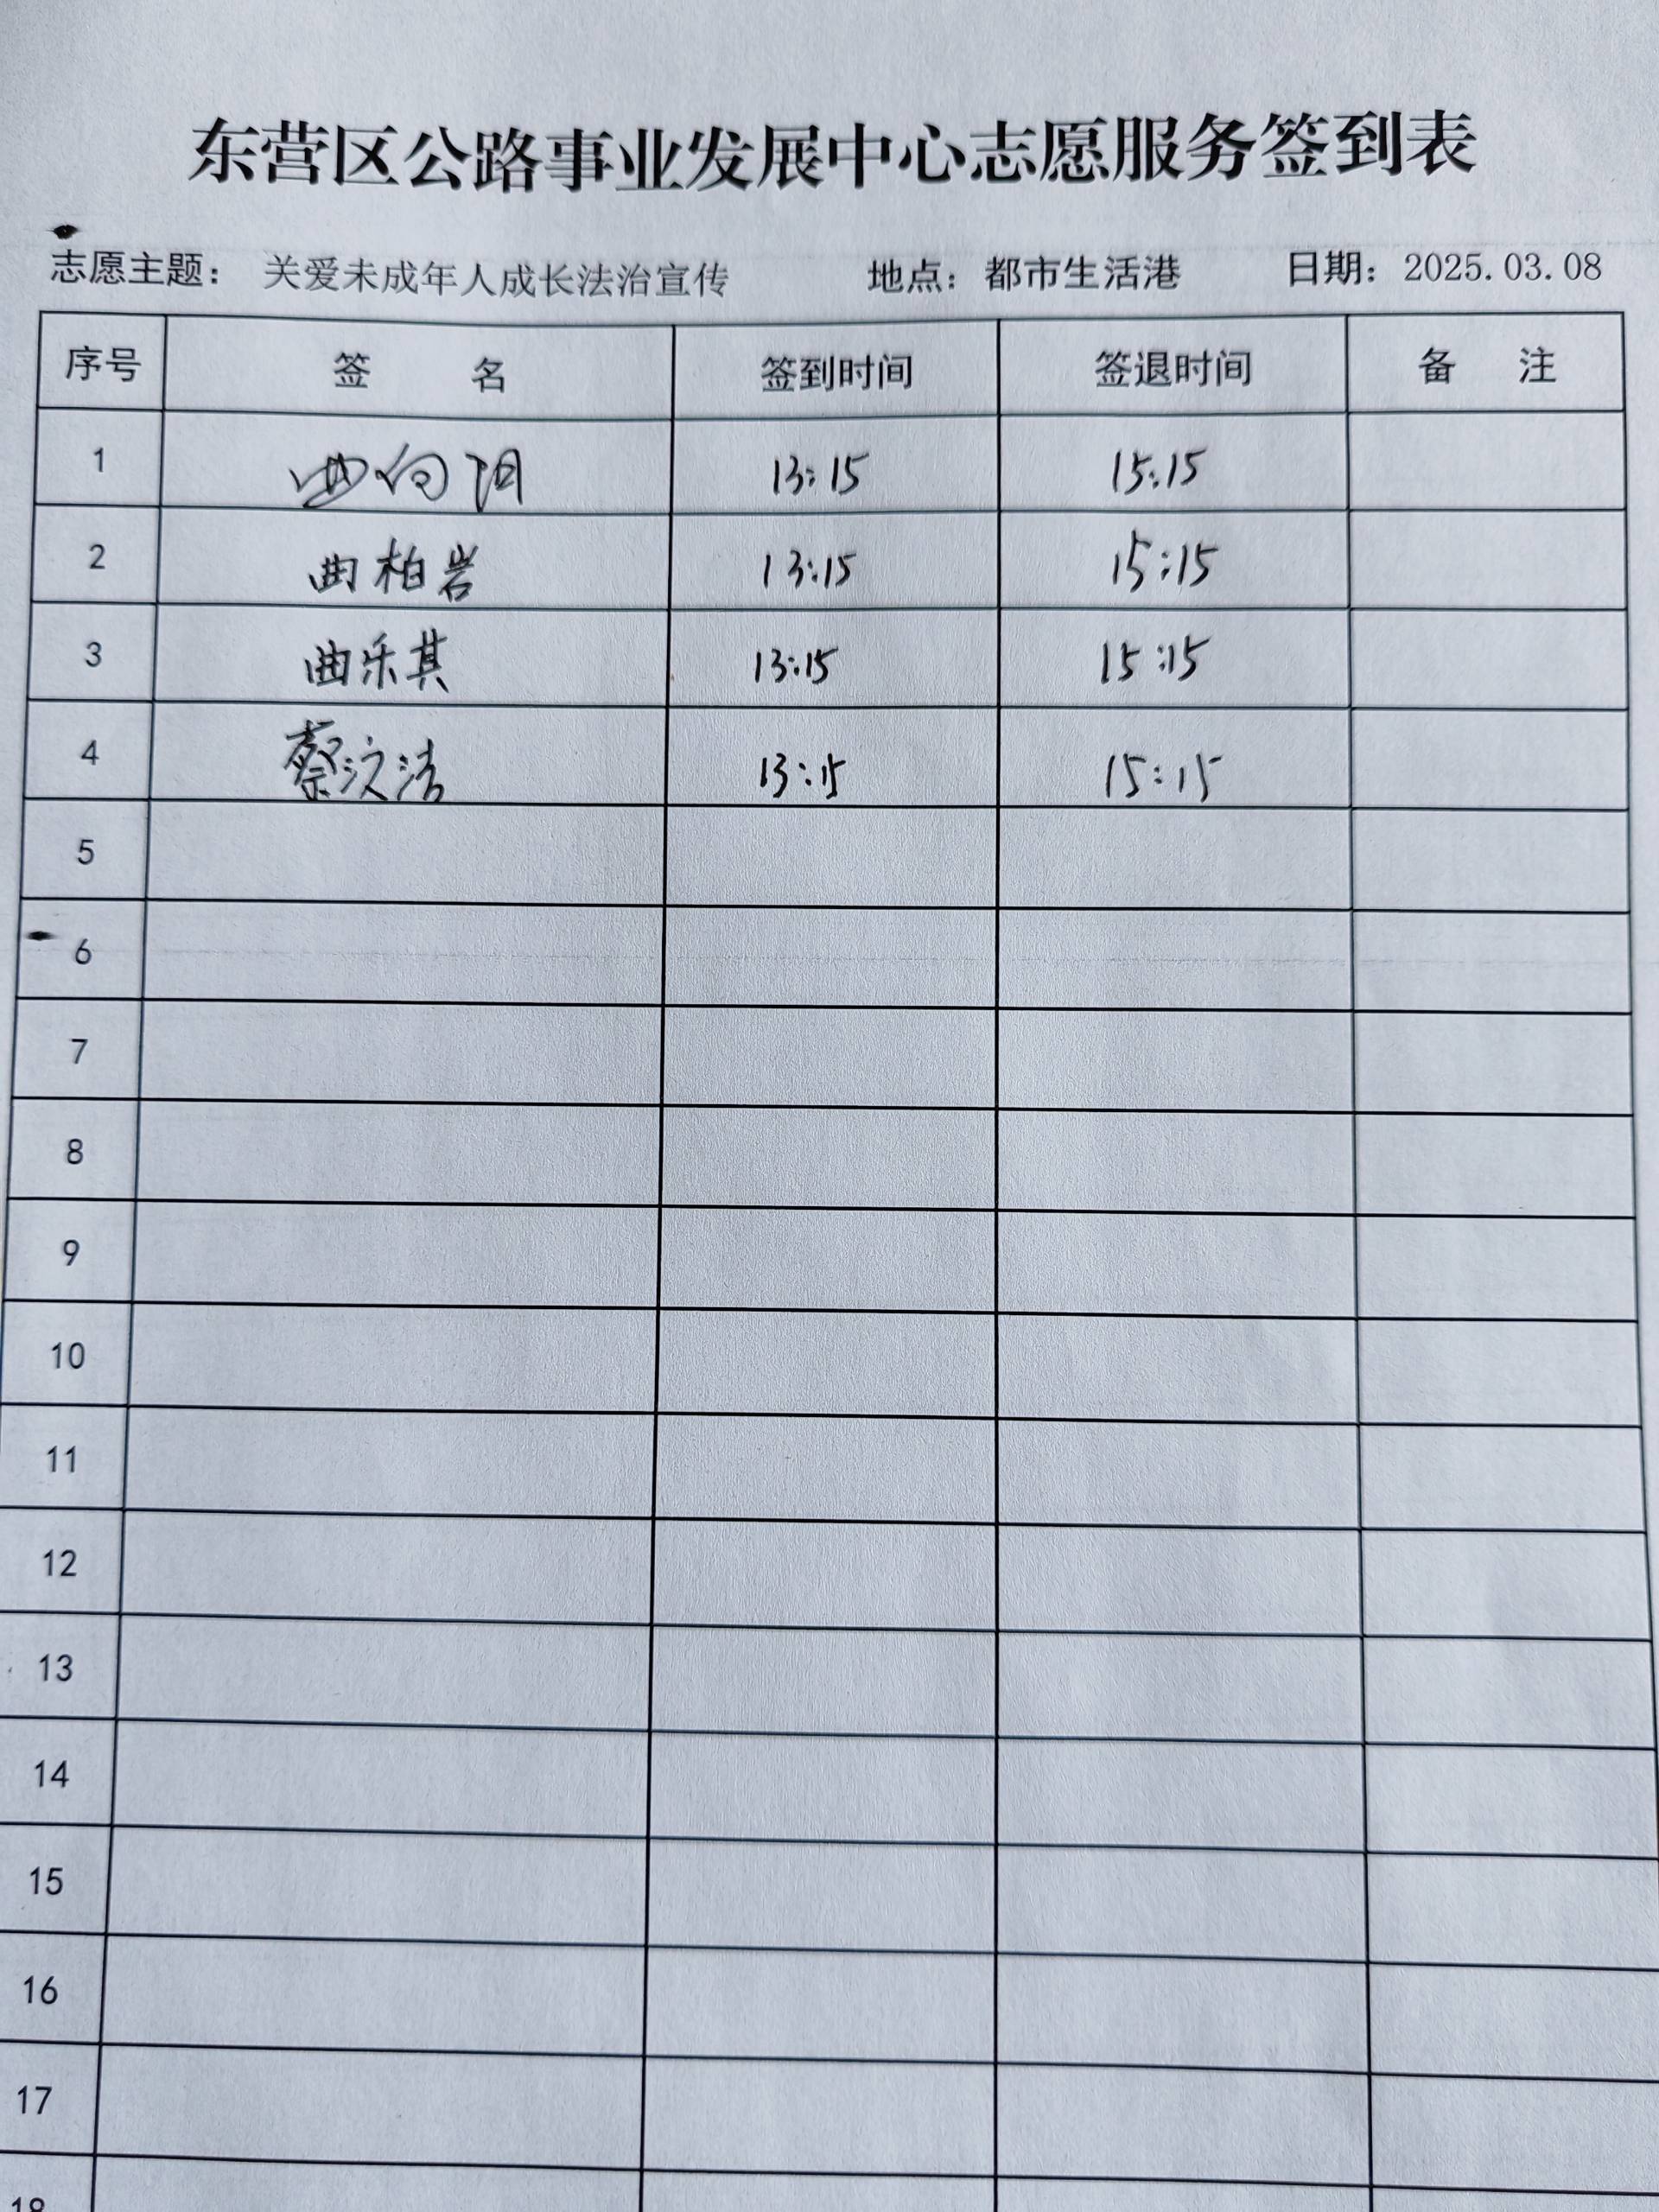 东营区公路事业发展中心志愿服务签到表
志愿主题: 关爱未成年人成长法治宣传 地点: 都市生活港 日期: 2025.03.08
序号 签 名 签到时间 签退时间 备 注
1 曲向阳 13:15 15:15
2 曲柏岩 13:15 15:15
3 曲乐其 13:15 15:15
4 蔡汶洁 13:15 15:15
5
6
7
8
9
10
11
12
13
14
15
16
17
18